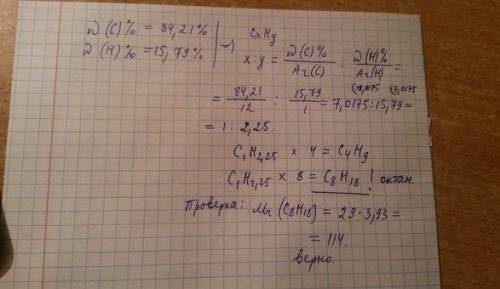 D (C)% = 84,21%
D (H)% = 15,79% →
CxHy
x:y = D(C)% / Ar(C) : D(H)% / Ar(H) =
(7,0175 (7,0175
= 84,21 / 12 : 15,79 / 1 = 7,0175 : 15,79 =
= 1 : 2,25
C₁H₂,₂₅ × 4 = C₄H₉
C₁H₂,₂₅ × 8 = C₈H₁₈! октан.
Проверка: Mr (C₈H₁₈) = 29·3,93 =
= 114.
верно.